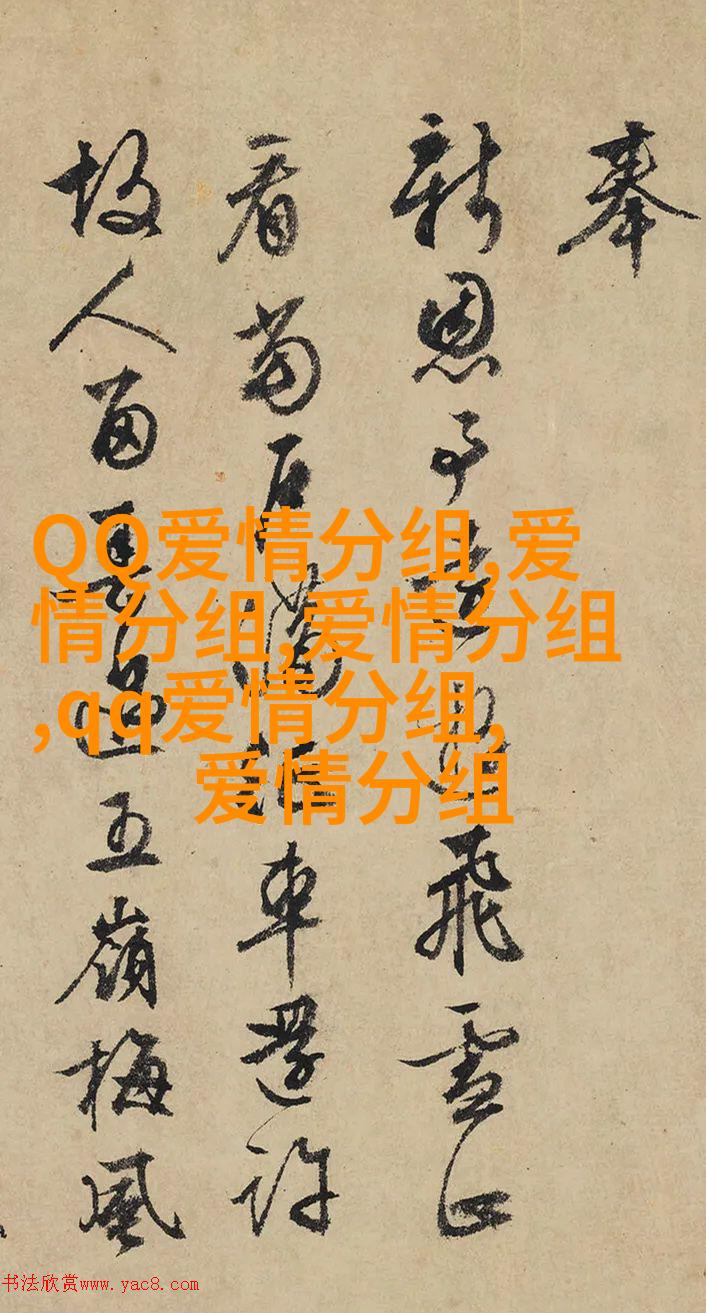 奉
新恩遠飛雪正
看滿車還許
故人過五嶺梅風
QQ爱情分组,爱
情分组,爱情分组
,qq爱情分组,
爱情分组
书法欣赏www.yac8.com